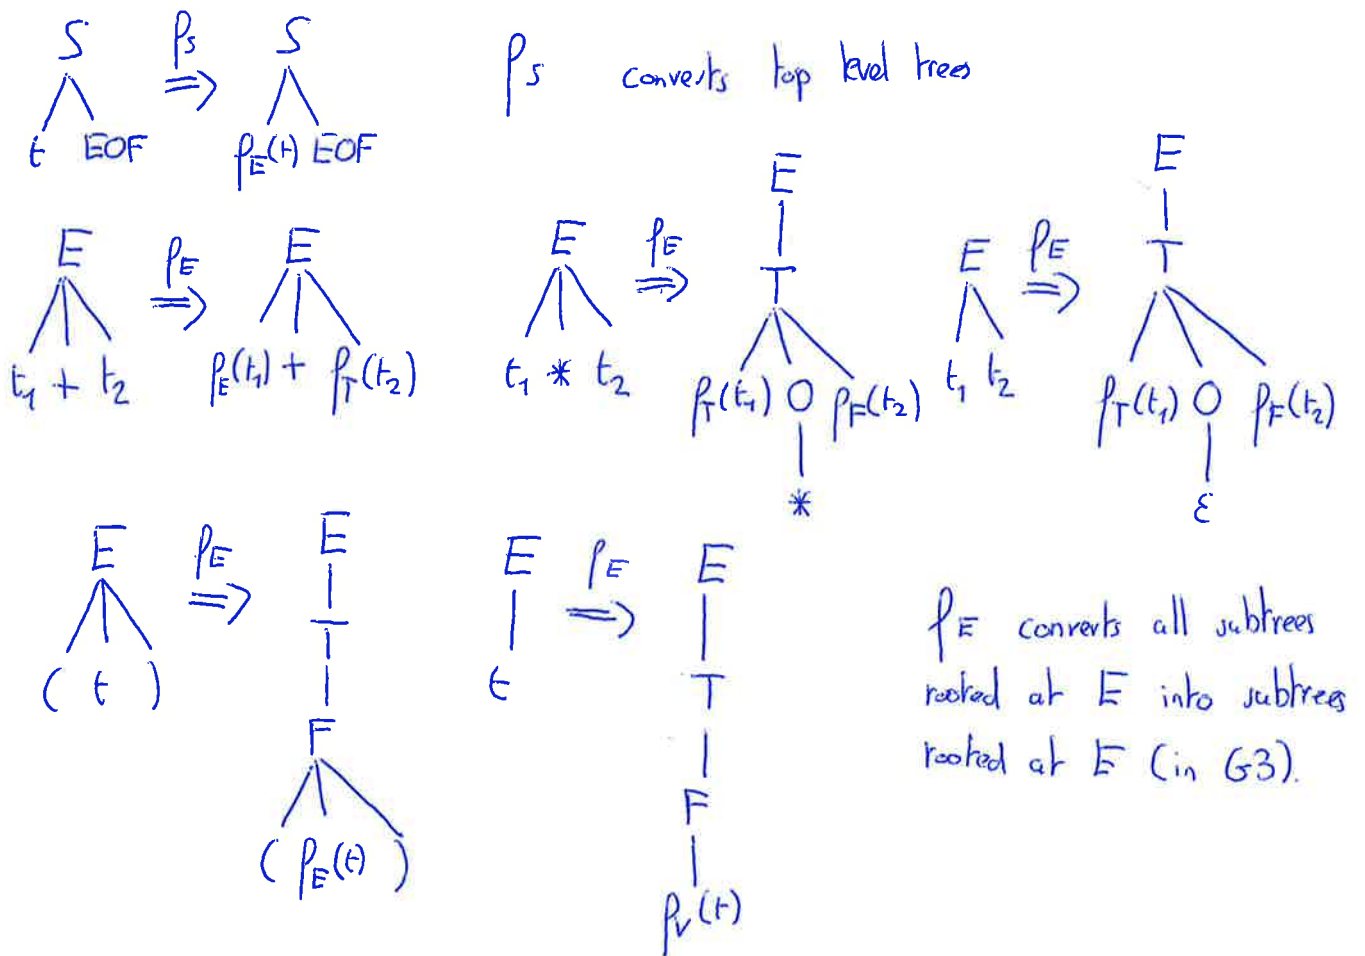 S ρS S
⇒
t EOF ρE(t) EOF
ρS converts top level trees
E ρE E
⇒
t1 + t2 ρE(t1) + ρT(t2)
E ρE E
⇒ T
t1 * t2 ρT(t1) O ρF(t2)
*
E ρE E
⇒ T
t1 t2 ρT(t1) O ρF(t2)
ε
E ρE E
⇒ T
( t ) F
( ρE(t) )
E ρE E
⇒
t T
F
ρV(t)
ρE converts all subtrees
rooted at E into subtrees
rooted at E (in G3).